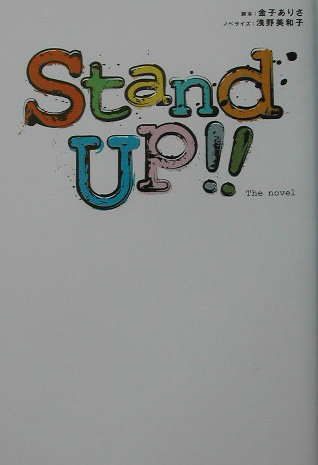 脚本：金子ありさ
ノベライズ：浅野美和子
Stand
UP!!
The novel